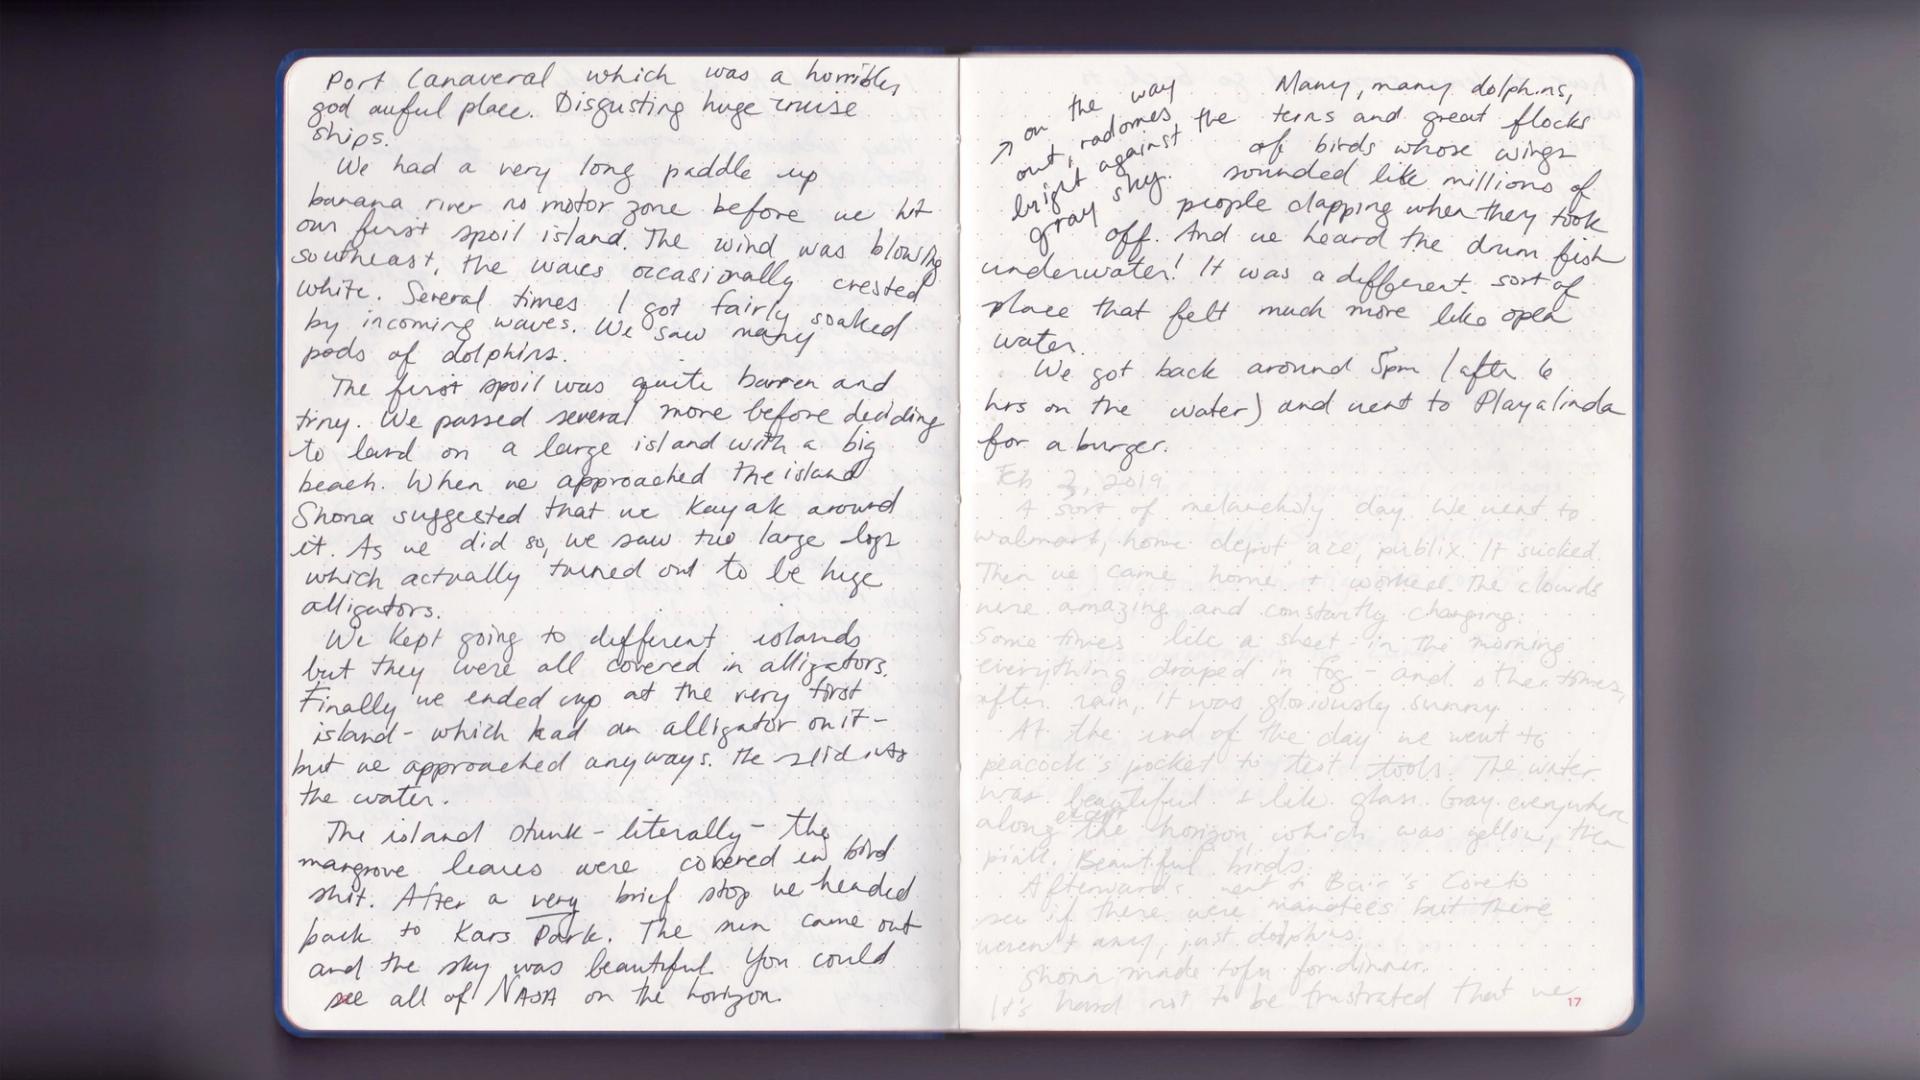 Port Canaveral which was a horrible,
god awful place. Disgusting huge cruise
ships.
We had a very long paddle up
banana river no motor zone before we hit
our first spoil island. The wind was blowing
southeast, the waves occasionally crested
white. Several times I got fairly soaked
by incoming waves. We saw many
pods of dolphins.
The first spoil was quite barren and
tiny. We passed several more before deciding
to land on a large island with a big
beach. When we approached the island
Shona suggested that we kayak around
it. As we did so, we saw two large logs
which actually turned out to be huge
alligators.
We kept going to different islands
but they were all covered in alligators.
Finally we ended up at the very first
island - which had an alligator on it -
but we approached anyways. He slid into
the water.
The island stunk - literally - the
mangrove leaves were covered in bird
shit. After a very brief stop we headed
back to Kars Park. The sun came out
and the sky was beautiful. You could
see all of NASA on the horizon.
↗ on the way
out, radomes
bright against the
gray sky.
Many, many dolphins,
terns and great flocks
of birds whose wings
sounded like millions of
people clapping when they took
off. And we heard the drum fish
underwater! It was a different sort of
place that felt much more like open
water.
We got back around 5pm (after 6
hrs on the water) and went to Playalinda
for a burger.
Feb 3, 2019
A sort of melancholy day. We went to
walmart, home depot, ace, publix. It sucked.
Then we came home + worked. The clouds
were amazing and constantly changing.
Some times like a sheet - in the morning
everything draped in fog - and other times,
after rain, it was gloriously sunny.
At the end of the day we went to
peacock's pocket to test tools. The water
was beautiful + like glass. Gray everywhere
along the horizon, which was yellow, then
except
pink. Beautiful birds.
Afterwards went to Bair's Cove to
see if there were manatees but there
weren't any, just dolphins.
Shona made tofu for dinner.
It's hard not to be frustrated that we
17